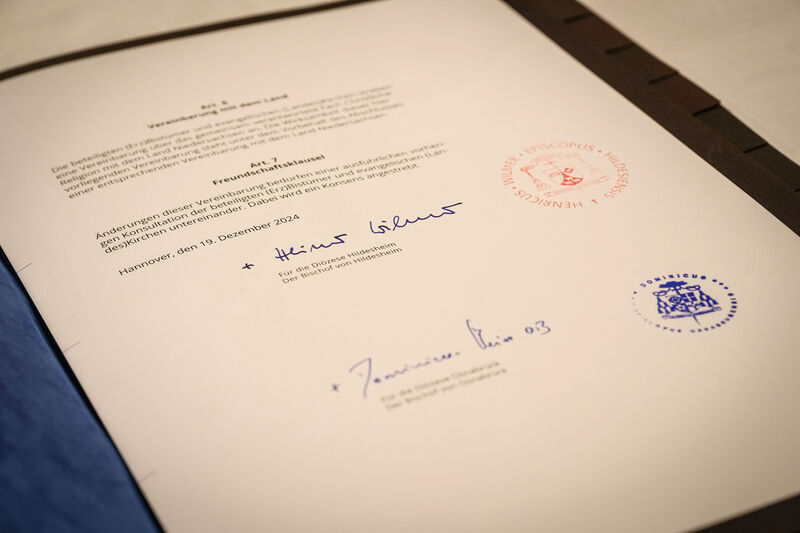 Art. 6
Vereinbarung mit dem Land
Die beteiligten (Erz)Bistümer und evangelischen (Landes)Kirchen streben
eine Vereinbarung über das gemeinsam verantwortete Fach Christliche
Religion mit dem Land Niedersachsen an. Die Wirksamkeit dieser hier
vorliegenden Vereinbarung steht unter dem Vorbehalt des Abschlusses
einer entsprechenden Vereinbarung mit dem Land Niedersachsen.
Art. 7
Freundschaftsklausel
Änderungen dieser Vereinbarung bedürfen einer ausführlichen vorheri-
gen Konsultation der beteiligten (Erz)Bistümer und evangelischen (Lan-
des)Kirchen untereinander. Dabei wird ein Konsens angestrebt.
Hannover, den 19. Dezember 2024
HENRICUS WILMER • EPISCOPUS • HILDESIENSIS +
+ Heiner Wilmer
Für die Diözese Hildesheim
Der Bischof von Hildesheim
DOMINICUS
+ Dominicus Meier OSB
Für die Diözese Osnabrück
Der Bischof von Osnabrück